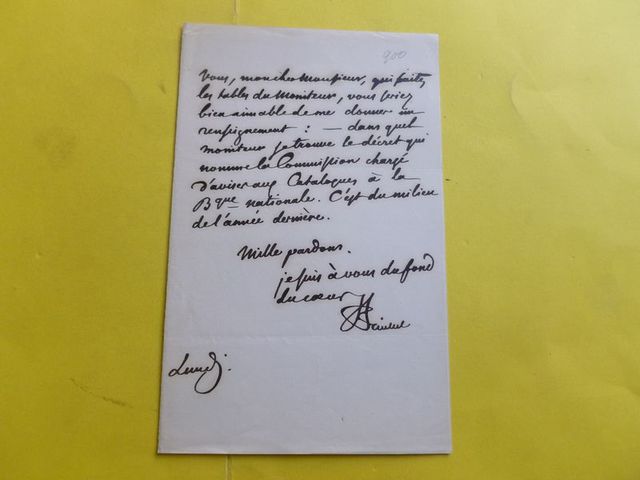 900
Vous, mon cher Monsieur, qui faites
les tables du Moniteur, vous seriez
bien aimable de me donner un
renseignement : — dans quel
moniteur je trouve le décret qui
nomme la Commission chargé
d'aviser aux Catalogues à la
Bque nationale. C'est du milieu
de l'année dernière.
Mille pardons.
je suis à vous du fond
du cœur
Lundi.